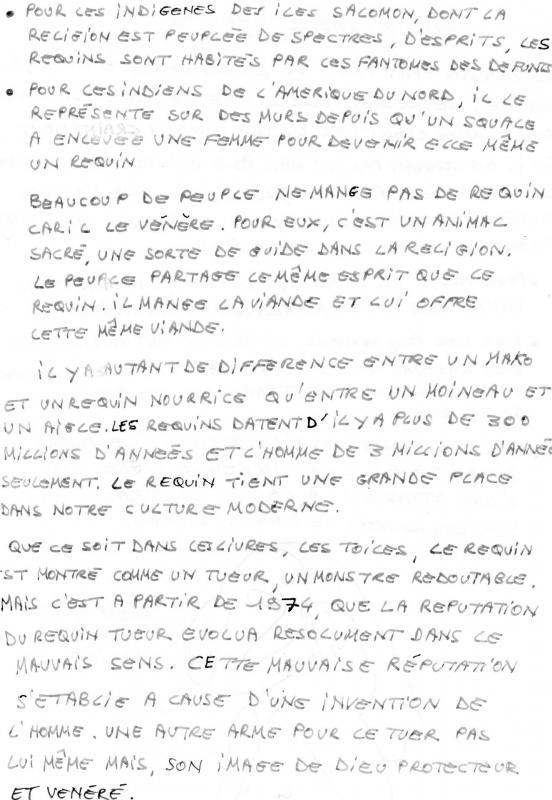 • POUR LES INDIGENES DES ILES SALOMON, DONT LA
RELIGION EST PEUPLÉE DE SPECTRES, D'ESPRITS, LES
REQUINS SONT HABITÉS PAR CES FANTOMES DES DEFUNTS
• POUR LES INDIENS DE L'AMERIQUE DU NORD, IL LE
REPRÉSENTE SUR DES MURS DEPUIS QU'UN SQUALE
A ENLEVÉE UNE FEMME POUR DEVENIR ELLE MÊME
UN REQUIN
BEAUCOUP DE PEUPLE NE MANGE PAS DE REQUIN
CAR IL LE VÉNÈRE. POUR EUX, C'EST UN ANIMAL
SACRÉ, UNE SORTE DE GUIDE DANS LA RELIGION.
LE PEUPLE PARTAGE LE MÊME ESPRIT QUE LE
REQUIN. IL MANGE LA VIANDE ET LUI OFFRE
CETTE MÊME VIANDE.
IL Y A AUTANT DE DIFFERENCE ENTRE UN MAKO
ET UN REQUIN NOURRICE QU'ENTRE UN MOINEAU ET
UN AIGLE. LES REQUINS DATENT D'IL Y A PLUS DE 300
MILLIONS D'ANNEÉS ET L'HOMME DE 3 MILLIONS D'ANNÉE
SEULEMENT. LE REQUIN TIENT UNE GRANDE PLACE
DANS NOTRE CULTURE MODERNE.
QUE CE SOIT DANS LES LIVRES, LES TOILES, LE REQUIN
EST MONTRÉ COMME UN TUEUR, UN MONSTRE REDOUTABLE.
MAIS C'EST A PARTIR DE 1974, QUE LA REPUTATION
DU REQUIN TUEUR EVOLUA RESOLUMENT DANS LE
MAUVAIS SENS. CETTE MAUVAISE RÉPUTATION
S'ETABLIE A CAUSE D'UNE INVENTION DE
L'HOMME. UNE AUTRE ARME POUR LE TUER PAS
LUI MÊME MAIS, SON IMAGE DE DIEU PROTECTEUR
ET VENÉRÉ.